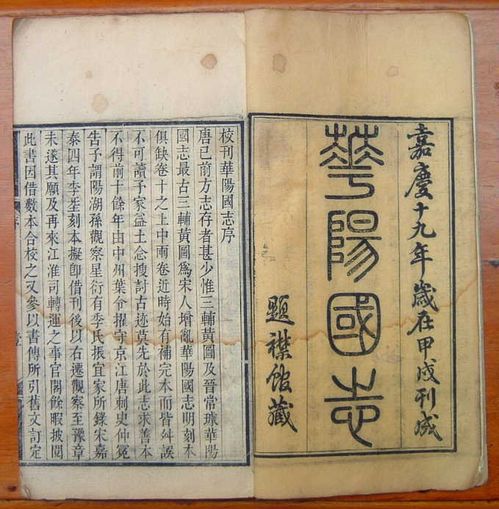 嘉慶十九年歲在甲戌刊成
華陽國志
題襟館藏
校刊華陽國志序
唐已前方志存者甚少惟三輔黃圖及晉常璩華陽
國志最古三輔黃圖爲宋人增亂華陽國志明刻本
俱缺卷十之上中兩卷近時始有補完本而皆舛誤
不可讀予家益土念搜討古迹莫先於此志求善本
不得前十餘年由中州葉令擢守京江唐刺史仲冕
告予謂陽湖孫觀察星衍有季氏振宜家所錄宋嘉
泰四年李刻本擬卽借刊後以右遷觀察至豫章
未遂其願及再來江淮司轉運之事官閒餘暇披閱
此書因借數本合校之又參以書傳所引舊文訂定
序